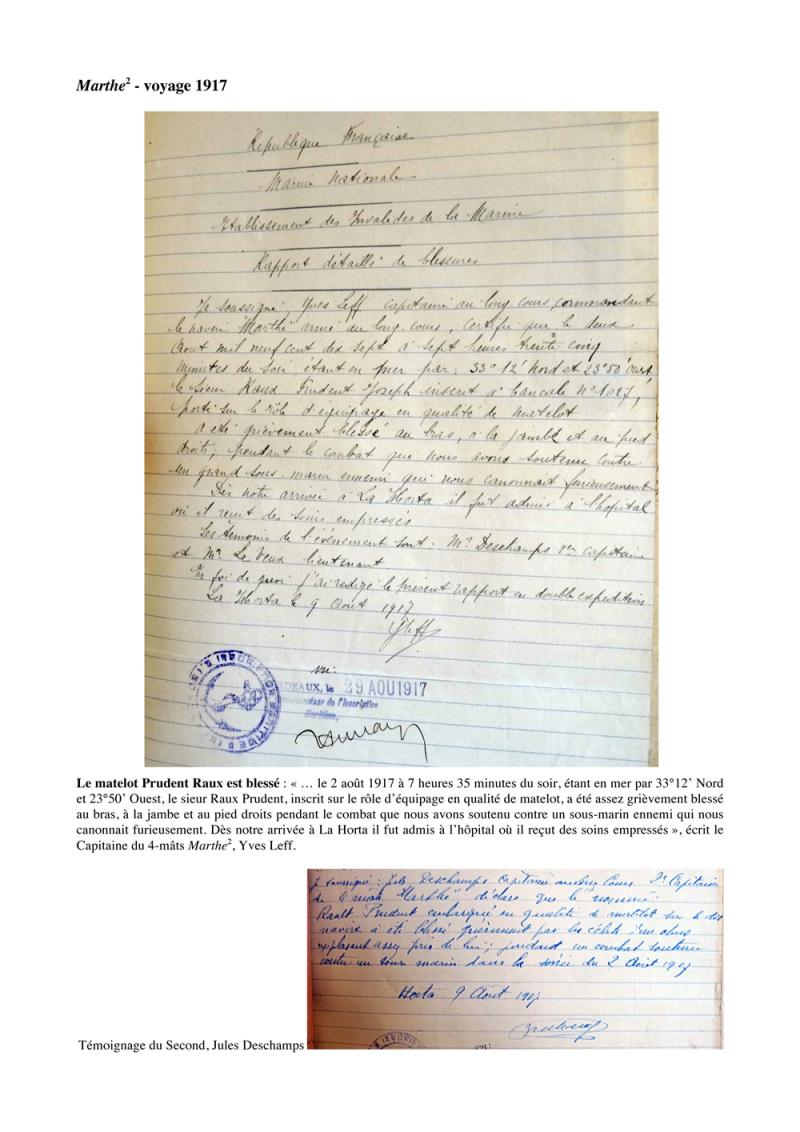 Marthe² - voyage 1917
République Française
Marine Nationale
Etablissement des Invalides de la Marine
Rapport détaillé de blessures
Je soussigné, Yves Leff capitaine au long cours, commandant
le navire Marthe armé au long cours, certifie que le deux
Aout mil neuf cent dix sept à sept heures trente cinq
minutes du soir, étant en mer par: 33° 12' Nord et 23° 50' Ouest
le sieur Raux Prudent Joseph inscrit à Cancale n° 1027,
porté sur le rôle d'équipage en qualité de matelot
a été grièvement blessé au bras, à la jambe et au pied
droits, pendant le combat que nous avons soutenu contre
un grand sous-marin ennemi qui nous canonnait furieusement
Dès notre arrivée à La Horta il fut admis à l'hopital
où il recut des soins empressés
Les témoins de l'événement sont: Mr Deschamps Capitaine
et Mr Le Veux lieutenant
En foi de quoi j'ai redigé le present rapport en double expedition
La Horta le 9 Aout 1917
YLeff
vu:
BORDEAUX, le 29 AOU 1917
de l'Inscription
Maritime,
Le matelot Prudent Raux est blessé : « … le 2 août 1917 à 7 heures 35 minutes du soir, étant en mer par 33°12’ Nord
et 23°50’ Ouest, le sieur Raux Prudent, inscrit sur le rôle d’équipage en qualité de matelot, a été assez grièvement blessé
au bras, à la jambe et au pied droits pendant le combat que nous avons soutenu contre un sous-marin ennemi qui nous
canonnait furieusement. Dès notre arrivée à La Horta il fut admis à l’hôpital où il reçut des soins empressés », écrit le
Capitaine du 4-mâts Marthe², Yves Leff.
Je soussigné: Jules Deschamps Capitaine au long Cours 2e Capitaine
du 4 mâts "Marthe" déclare que le nommé:
Rault Prudent embarqué en qualité de matelot sur le dit
navire a été blessé grièvement par les éclats d'un obus
explosant assez près de lui; pendant un combat soutenu
contre un sous marin dans la soirée du 2 Août 1917
Horta 9 Août 1917
Témoignage du Second, Jules Deschamps